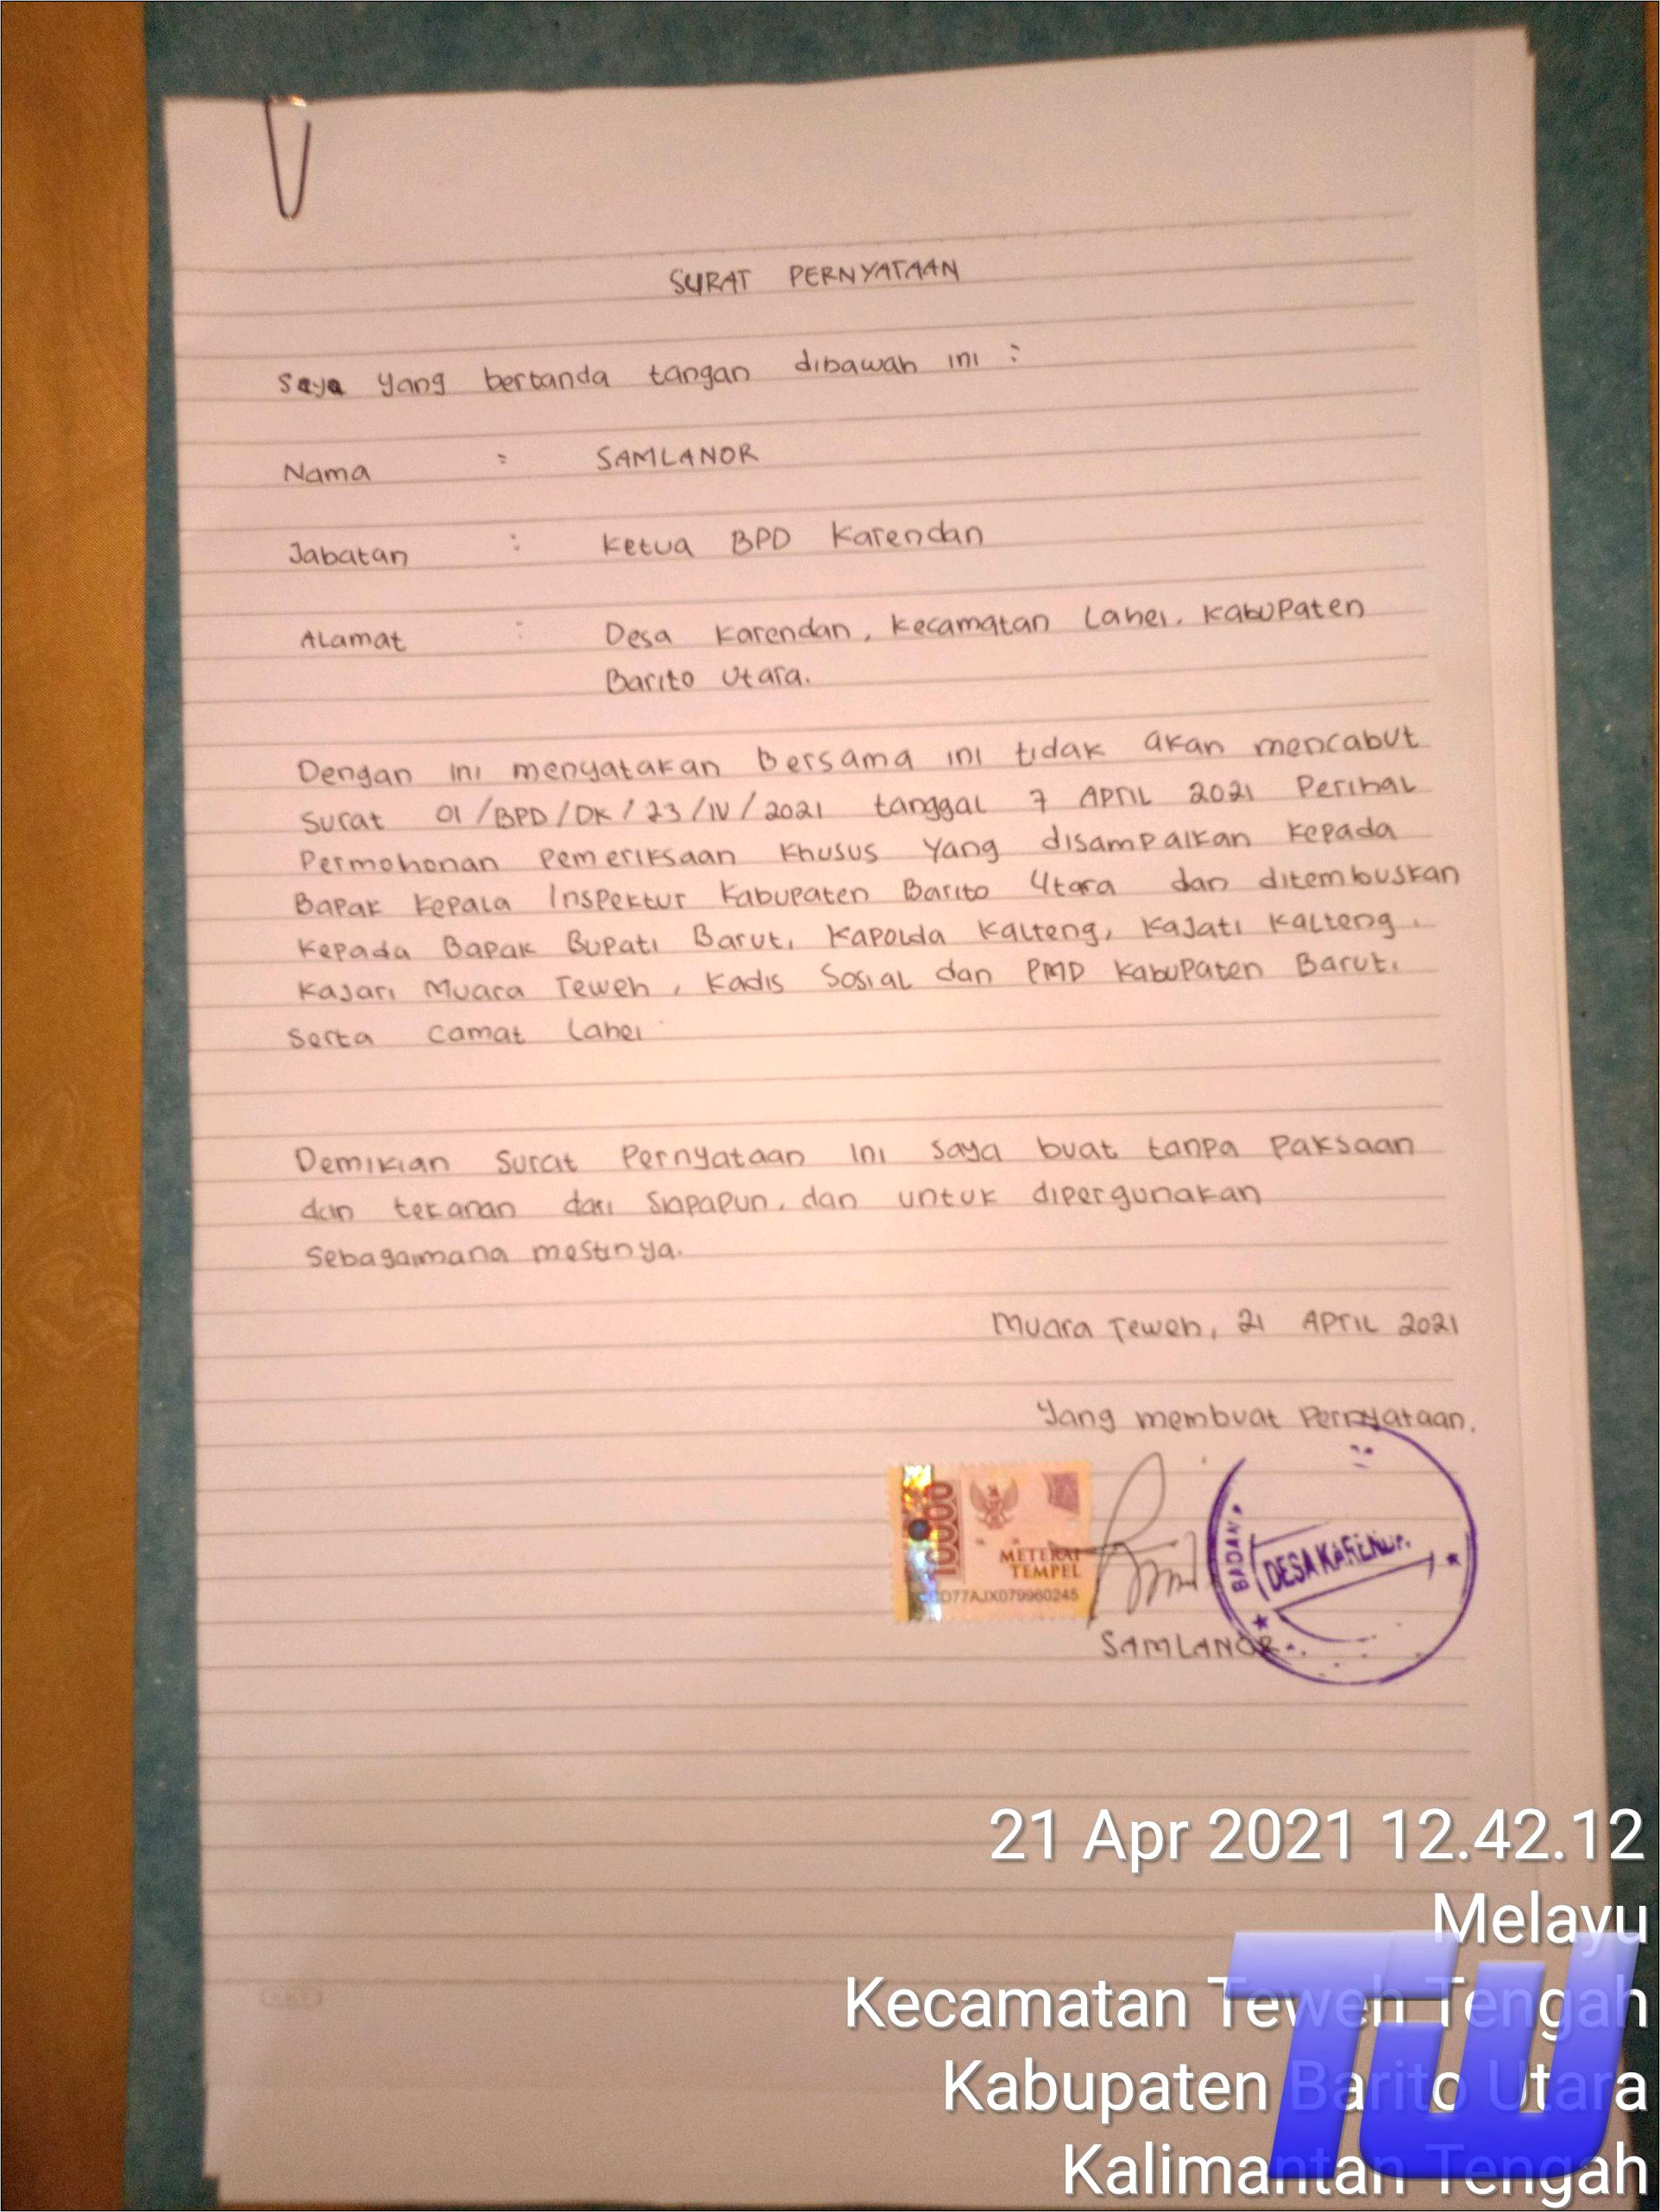 SURAT PERNYATAAN
Saya yang bertanda tangan dibawah ini :
Nama : SAMLANOR
Jabatan : Ketua BPD Karendan
Alamat : Desa Karendan, Kecamatan Lahei, Kabupaten
Barito Utara.
Dengan ini menyatakan Bersama ini tidak akan mencabut
Surat 01/BPD/DK/23/IV/2021 tanggal 7 APRIL 2021 Perihal
Permohonan Pemeriksaan Khusus Yang disampaikan Kepada
Bapak Kepala Inspektur Kabupaten Barito Utara dan ditembuskan
Kepada Bapak Bupati Barut, Kapolda Kalteng, Kajati Kalteng,
Kajari Muara Teweh, Kadis Sosial dan PMD Kabupaten Barut,
Serta Camat Lahei
Demikian Surat Pernyataan ini saya buat tanpa Paksaan
dan tekanan dari Siapapun, dan untuk dipergunakan
Sebagaimana mestinya.
Muara Teweh, 21 APRIL 2021
Yang membuat Pernyataan,
10000
METERAI
TEMPEL
D77AJX079980245
BADAN
DESA KAREND
SAMLANOR
21 Apr 2021 12.42.12
Melayu
Kecamatan Teweh Tengah
Kabupaten Barito Utara
Kalimantan Tengah
TU